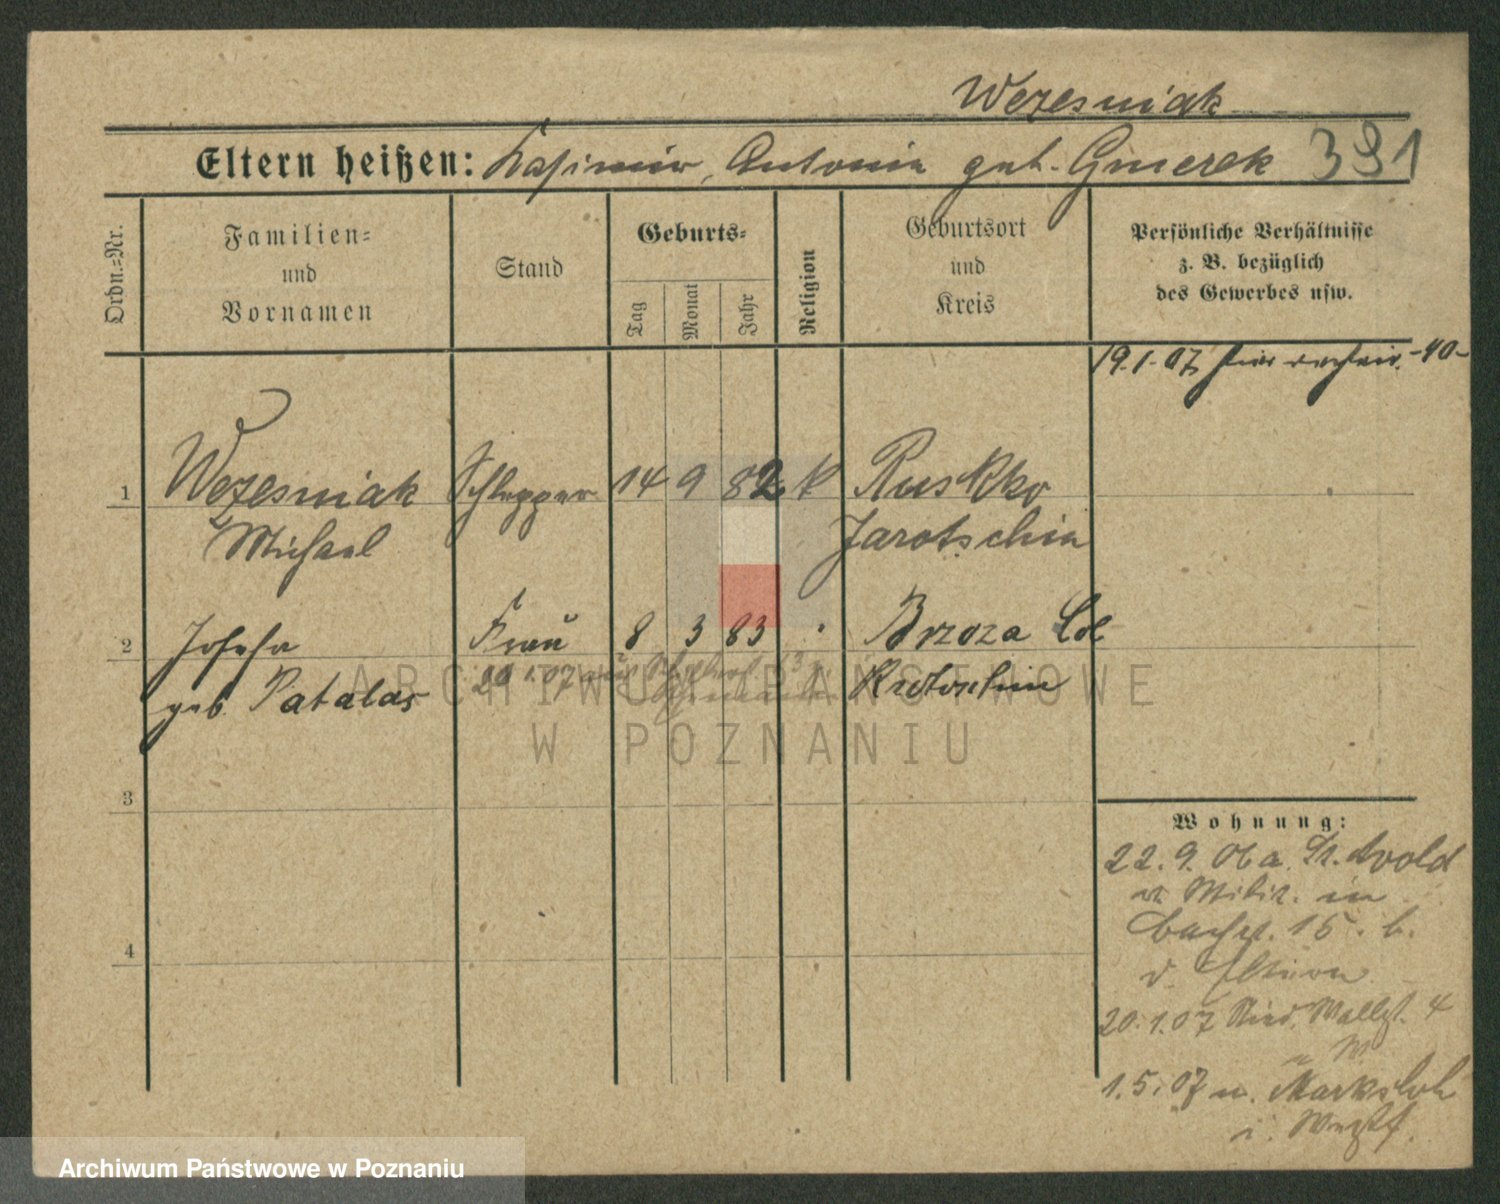 Wezesniak
Eltern heißen: Kasimir, Antonia geb. Gmerek 391
Ordn.=Nr.
Familien=
und
Vornamen
Stand
Geburts=
Tag
Monat
Jahr
Religion
Geburtsort
und
Kreis
Persönliche Verhältnisse
z. B. bezüglich
des Gewerbes usw.
19.1.07 hier -40-
1 Wezesniak Schlepper 14 9 82 k Ruskko
Michael Jarotschin
2 Josefa Frau 8 3 83 Brzoza
geb. Patalas Krotoschin
20.1.07 aus
3
4
Wohnung:
22.9.06 a. St. Avold
v. Militr. in
15. b.
d. Eltern
20.1.07 Wallst. 4
1.5.07 n. Marksloh
i. Westf.
ARCHIWUM PAŃSTWOWE
W POZNANIU
Archiwum Państwowe w Poznaniu